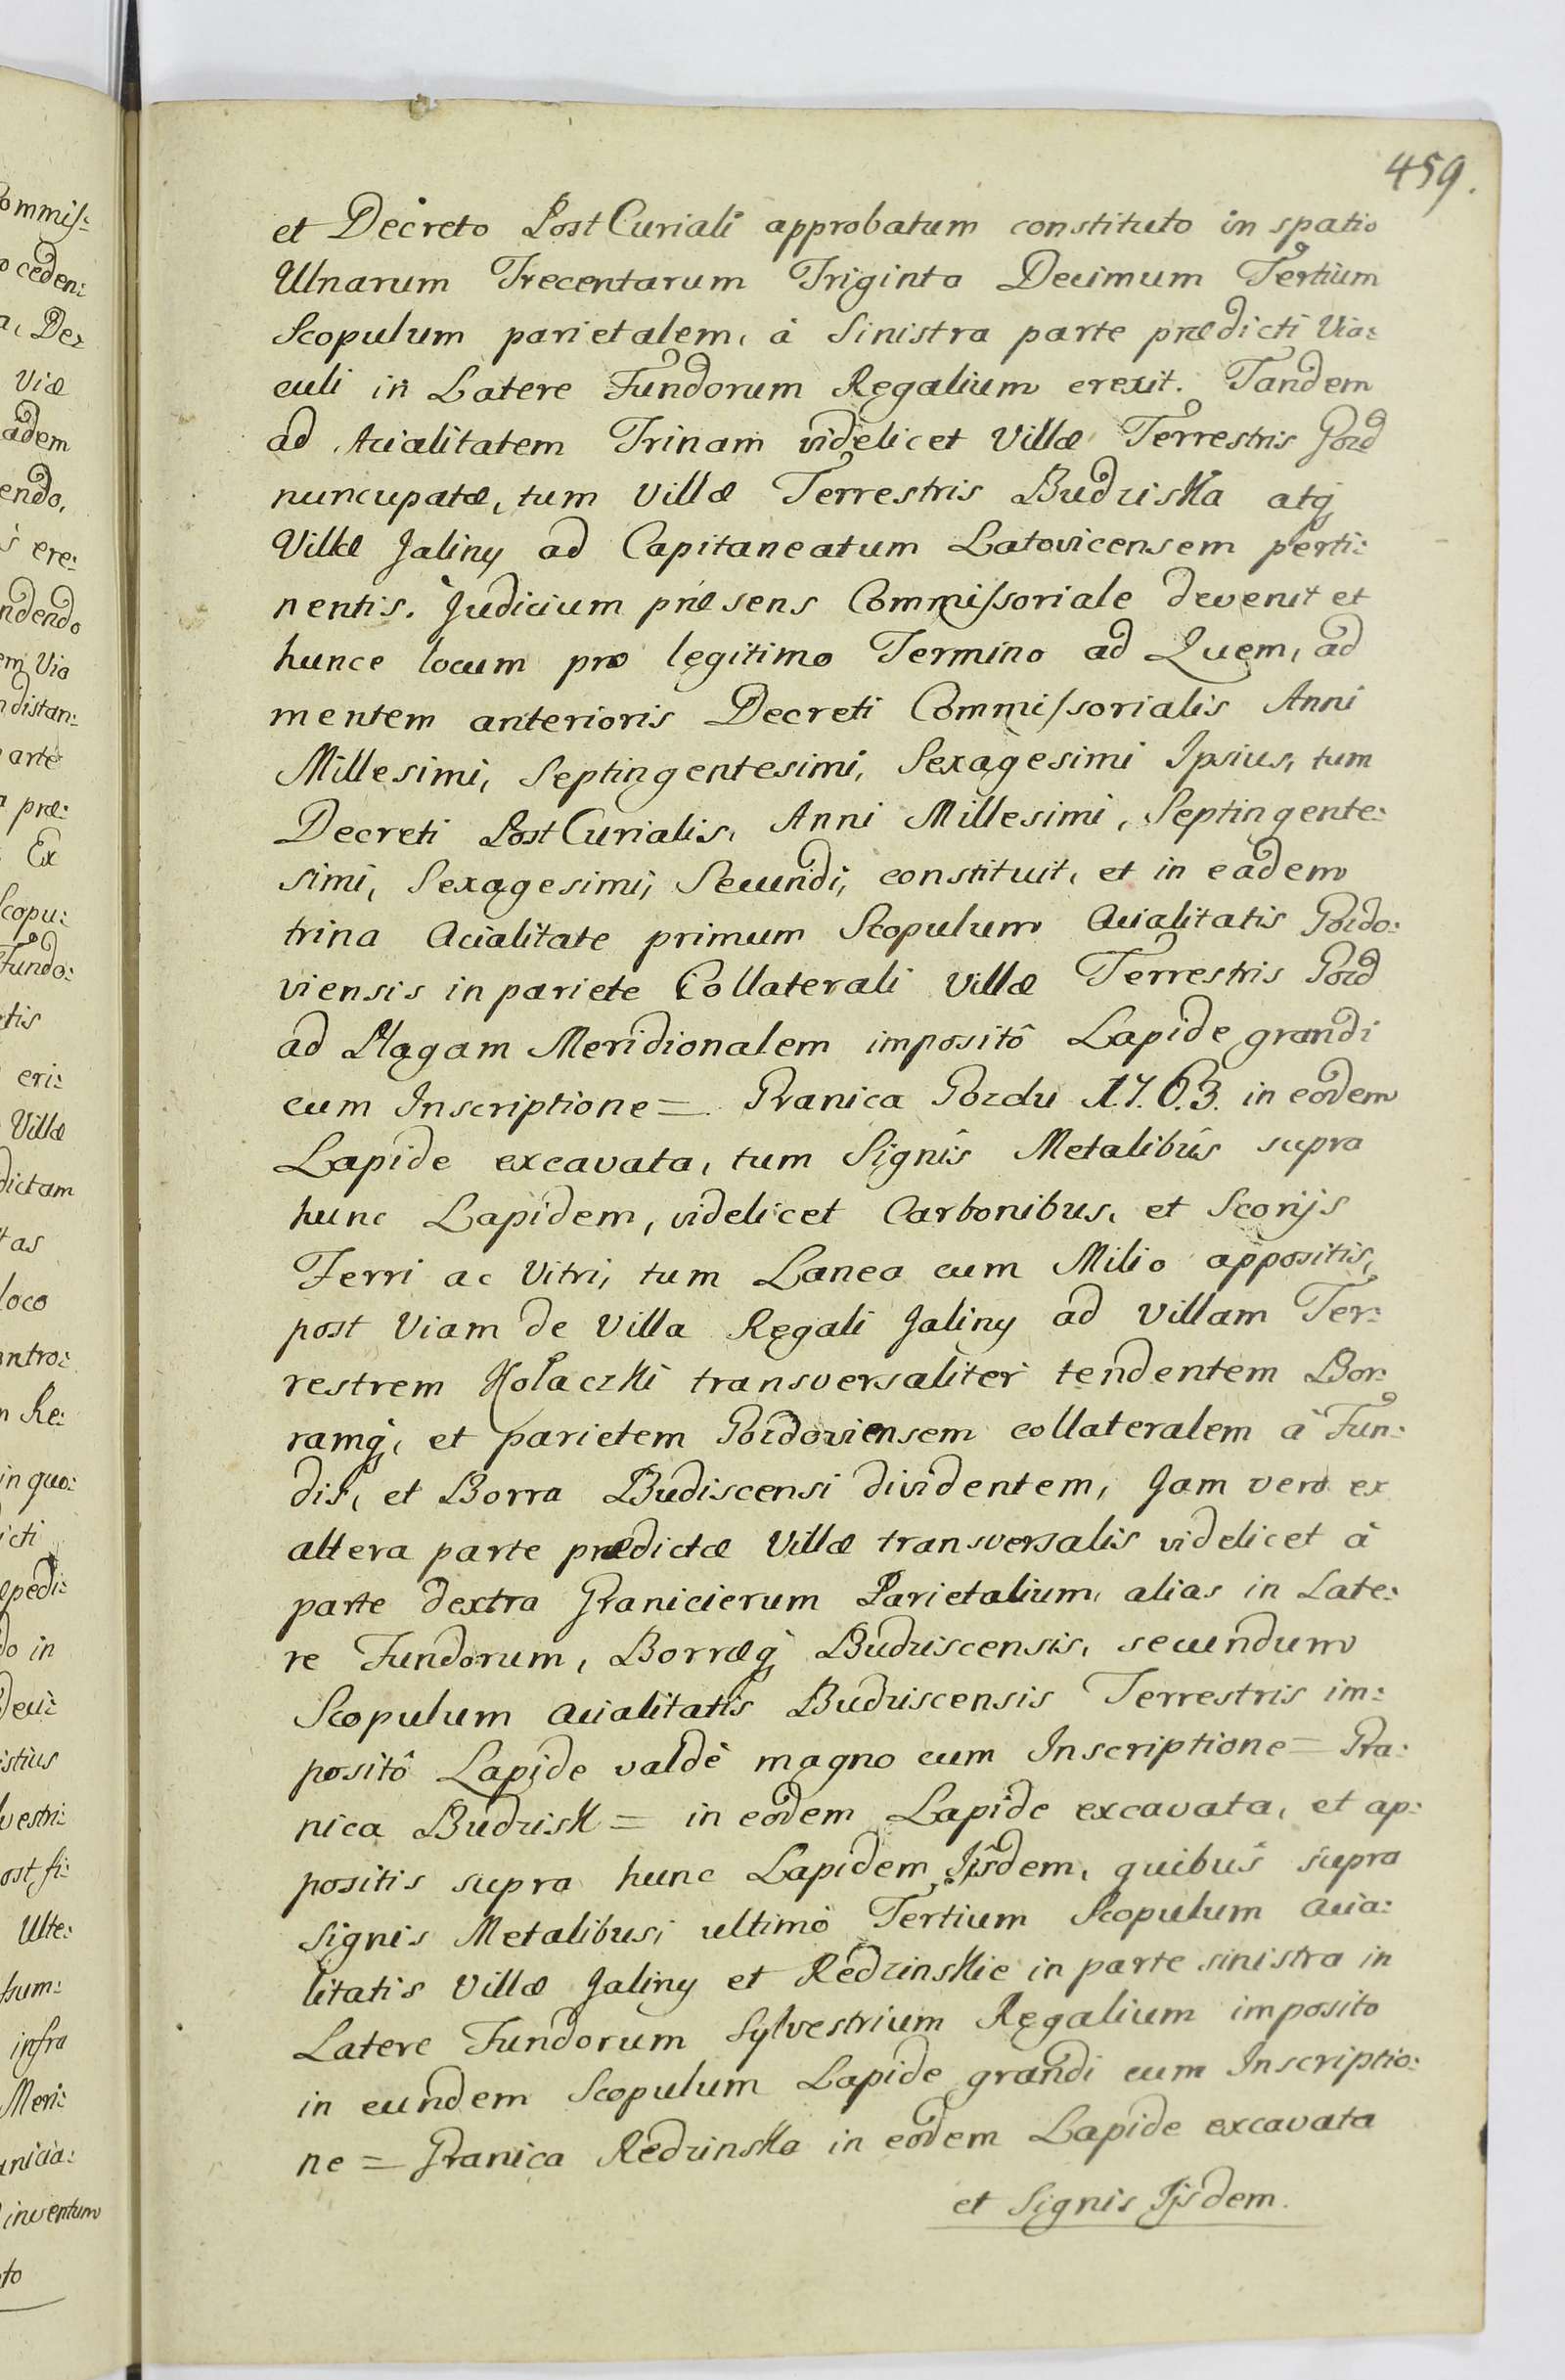 459.
et Decreto PostCuriali approbatum constituto in spatio
Ulnarum Trecentarum Triginta Decimum Tertium
Scopulum parietalem, à Sinistra parte prædicti Via:
culi in Latere Fundorum Regalium erexit. Tandem
ad Acialitatem Trinam videlicet Villæ Terrestris Gozd
nuncupatæ, tum Villæ Terrestris Budziska atq
Villæ Jaliny ad Capitaneatum Latovicensem perti:
nentis. Judicium præsens Commissoriale devenit et
hunce locum pro legitimo Termino ad Quem, ad
mentem anterioris Decreti Commissorialis Anni
Millesimi, Septingentesimi, Sexagesimi Ipsius, tum
Decreti PostCurialis, Anni Millesimi, Septingente:
simi, Sexagesimi, Secundi, constituit, et in eadem
trina Acialitate primum Scopulum Acialitatis Gozdo:
viensis in pariete Collaterali Villæ Terrestris Gozd
ad Plagam Meridionalem impositô Lapide grandi
cum Inscriptione = Granica Gozdu 1.7.6.3. in eodem
Lapide excavata, tum Signis Metalibus supra
hunc Lapidem, videlicet Carbonibus, et Scorijs
Ferri ac Vitri, tum Lanea cum Milio appositis,
post Viam de Villa Regali Jaliny ad Villam Ter:
restrem Kołaczki transversaliter tendentem Bor:
ramq, et parietem Gozdoviensem collateralem à Fun:
dis, et Borra Budiscensi dividentem, Jam vero ex
altera parte prædictæ Villæ transversalis videlicet à
parte dextra Granicierum Parietalium, alias in Late:
re Fundorum, Borræq Budziscensis, secundum
Scopulum Acialitatis Budziscensis Terrestris im:
positô Lapide valdè magno cum Inscriptione = Gra:
nica Budzisk = in eodem Lapide excavata, et ap:
positis supra hunc Lapidem Ijsdem, quibus supra
Signis Metalibus, ultimo Tertium Scopulum Acia:
litatis Villæ Jaliny et Redzinskie in parte sinistra in
Latere Fundorum Sylvestrium Regalium imposito
in eundem Scopulum Lapide grandi cum Inscriptio:
ne = Granica Redzinska in eodem Lapide excavata
et Signis Ijsdem.